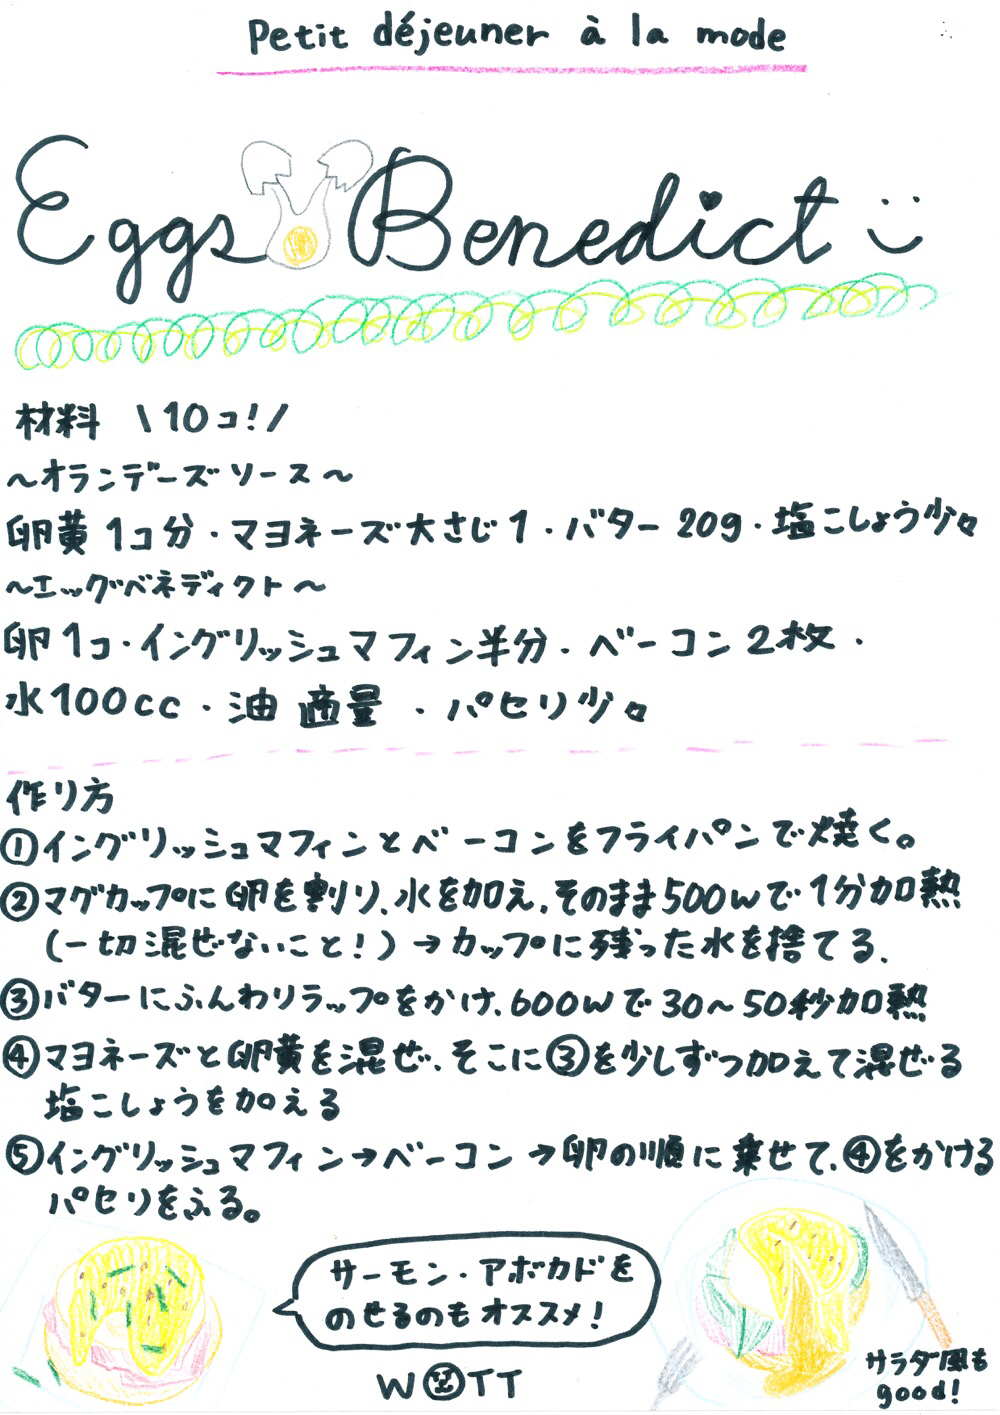 Petit déjeuner à la mode
Eggs Benedict
材料 \10コ!/
〜オランデーズソース〜
卵黄1コ分・マヨネーズ大さじ1・バター 20g・塩こしょう少々
〜エッグベネディクト〜
卵1コ・イングリッシュマフィン半分・ベーコン2枚・
水100cc・油 適量・パセリ少々
作り方
①イングリッシュマフィンとベーコンをフライパンで焼く。
②マグカップに卵を割り、水を加え、そのまま500wで1分加熱
(一切混ぜないこと!)→カップに残った水を捨てる、
③バターにふんわりラップをかけ、600wで30〜50秒加熱
④マヨネーズと卵黄を混ぜ、そこに③を少しずつ加えて混ぜる
塩こしょうを加える
⑤イングリッシュマフィン→ベーコン→卵の順に乗せて、④をかける
パセリをふる。
サーモン・アボカドを
のせるのもオススメ!
サラダ風も
good!